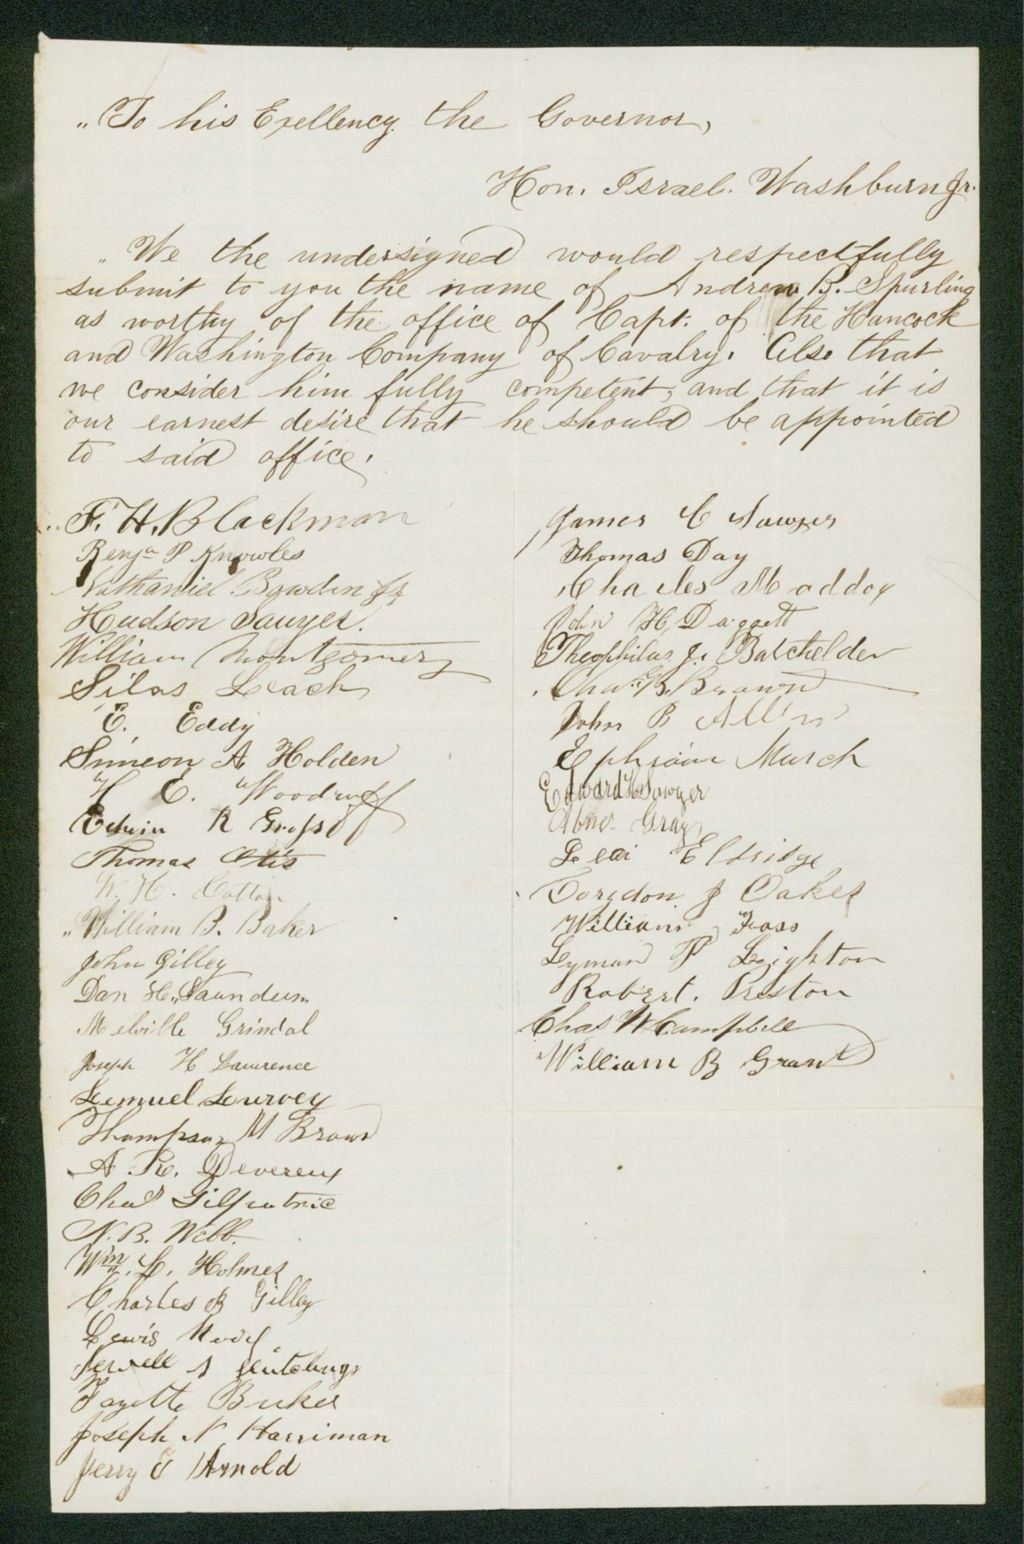 "To his Exellency the Governor,
Hon. Israel. Washburn Jr.
"We the undersigned would respectfully
submit to you the name of Andrew B. Spurling
as worthy of the office of Capt. of the Hancock
and Washington Company of Cavalry. Also that
we consider him fully competent, and that it is
our earnest desire that he should be appointed
to said office.
F. H. Blackman
Benja P Knowles
Nathaniel Bowden Jr
Hudson Sawyer.
William Montgomery
Silas Leach
E. Eddy
Simeon A Holden
H E. Woodruff
Edwin R Gross
Thomas Otis
W. H. Cotton
"William B. Baker
John Gilley
Dan H. Saunders
Melville Grindal
Joseph H Lawrence
Lemuel Lurvey
Thompson M Brown
A. R. Devereux
Chas Gilpatric
N. B. Webb.
Wm. L. Holmes
Charles B Gilley
Lewis
Fayette
Joseph N Harriman
Jerry Arnold
James C Sawyer
Thomas Day
Charles Maddox
John H. Daggett
Theophilus J. Batchelder
Chas. B. Brown
John B Allen
Ephraim March
Edward H Sawyer
Abner Gray
Levi Eldridge
J Oakes
William Foss
Lyman P Leighton
Robert. Preston
Chas W Campbell
William B Grant